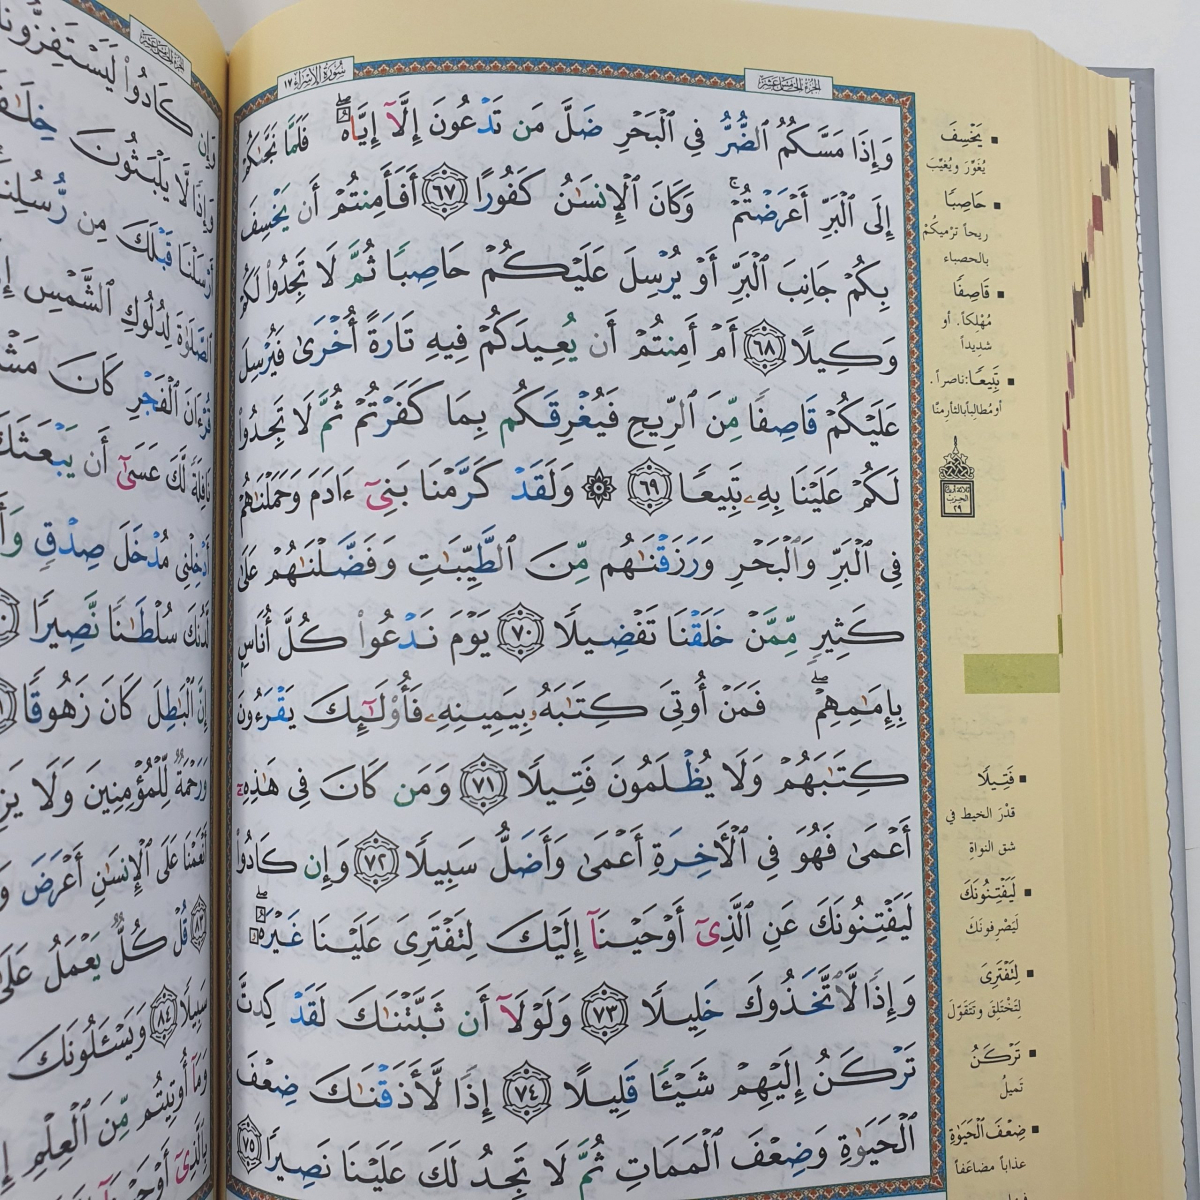 سُورَةُ الإِسْرَاءِ ١٧
الجُزْءُ الخَامِسَ عَشَرَ
وَإِذَا مَسَّكُمُ ٱلضُّرُّ فِي ٱلْبَحْرِ ضَلَّ مَن تَدْعُونَ إِلَّآ إِيَّاهُ ۖ فَلَمَّا نَجَّىٰكُمْ
إِلَى ٱلْبَرِّ أَعْرَضْتُمْ ۚ وَكَانَ ٱلْإِنسَٰنُ كَفُورًا ٦٧ أَفَأَمِنتُمْ أَن يَخْسِفَ
بِكُمْ جَانِبَ ٱلْبَرِّ أَوْ يُرْسِلَ عَلَيْكُمْ حَاصِبًا ثُمَّ لَا تَجِدُوا۟ لَكُمْ
وَكِيلًا ٦٨ أَمْ أَمِنتُمْ أَن يُعِيدَكُمْ فِيهِ تَارَةً أُخْرَىٰ فَيُرْسِلَ
عَلَيْكُمْ قَاصِفًا مِّنَ ٱلرِّيحِ فَيُغْرِقَكُم بِمَا كَفَرْتُمْ ثُمَّ لَا تَجِدُوا۟
لَكُمْ عَلَيْنَا بِهِۦ تَبِيعًا ٦٩ ۞ وَلَقَدْ كَرَّمْنَا بَنِىٓ ءَادَمَ وَحَمَلْنَٰهُمْ
فِي ٱلْبَرِّ وَٱلْبَحْرِ وَرَزَقْنَٰهُم مِّنَ ٱلطَّيِّبَٰتِ وَفَضَّلْنَٰهُمْ عَلَىٰ
كَثِيرٍ مِّمَّنْ خَلَقْنَا تَفْضِيلًا ٧٠ يَوْمَ نَدْعُوا۟ كُلَّ أُنَاسٍۭ
بِإِمَٰمِهِمْ ۖ فَمَنْ أُوتِىَ كِتَٰبَهُۥ بِيَمِينِهِۦ فَأُو۟لَٰٓئِكَ يَقْرَءُونَ
كِتَٰبَهُمْ وَلَا يُظْلَمُونَ فَتِيلًا ٧١ وَمَن كَانَ فِي هَٰذِهِۦٓ
أَعْمَىٰ فَهُوَ فِي ٱلْأَخِرَةِ أَعْمَىٰ وَأَضَلُّ سَبِيلًا ٧٢ وَإِن كَادُوا۟
لَيَفْتِنُونَكَ عَنِ ٱلَّذِىٓ أَوْحَيْنَآ إِلَيْكَ لِتَفْتَرِىَ عَلَيْنَا غَيْرَهُۥ ۖ
وَإِذًا لَّٱتَّخَذُوكَ خَلِيلًا ٧٣ وَلَوْلَآ أَن ثَبَّتْنَٰكَ لَقَدْ كِدتَّ
تَرْكَنُ إِلَيْهِمْ شَيْـًٔا قَلِيلًا ٧٤ إِذًا لَّأَذَقْنَٰكَ ضِعْفَ
ٱلْحَيَوٰةِ وَضِعْفَ ٱلْمَمَاتِ ثُمَّ لَا تَجِدُ لَكَ عَلَيْنَا نَصِيرًا ٧٥
يَخْسِفَ
يُغَوِّرَ ويُغَيِّبَ
حَاصِبًا
ريحاً ترْميكُمْ
بالحصباء
قَاصِفًا
مُهْلِكاً. أو
شديداً
تَبِيعًا: ناصراً.
أو مُطالِباً بالثأر منَّا
ثلاثة أرباع
الحزب
٢٩
فَتِيلًا
قدْرَ الخيط في
شق النواةِ
لَيَفْتِنُونَكَ
لَيَصْرِفونَكَ
لِتَفْتَرِىَ
لِتَخْتَلِقَ وتَتَقَوَّلَ
تَرْكَنُ
تَميلُ
ضِعْفَ الْحَيَوٰةِ
عذاباً مضاعفاً
الجُزْءُ الخَامِسَ عَشَرَ
وَإِن كَادُوا۟ لَيَسْتَفِزُّونَ
وَإِذًا لَّا يَلْبَثُونَ خِلَٰفَ
أَرْسَلْنَا قَبْلَكَ مِن رُّسُلِنَا
ٱلصَّلَوٰةَ لِدُلُوكِ ٱلشَّمْسِ
قُرْءَانَ ٱلْفَجْرِ كَانَ
نَافِلَةً لَّكَ عَسَىٰٓ أَن يَبْعَثَكَ
أَدْخِلْنِى مُدْخَلَ صِدْقٍ
لَّدُنكَ سُلْطَٰنًا نَّصِيرًا
إِنَّ ٱلْبَٰطِلَ كَانَ زَهُوقًا
وَرَحْمَةٌ لِّلْمُؤْمِنِينَ وَلَا
أَنْعَمْنَا عَلَى ٱلْإِنسَٰنِ أَعْرَضَ
٨٣ قُلْ كُلٌّ يَعْمَلُ عَلَىٰ
سَبِيلًا ٨٤ وَيَسْـَٔلُونَكَ
وَمَآ أُوتِيتُم مِّنَ ٱلْعِلْمِ
بِٱلَّذِىٓ